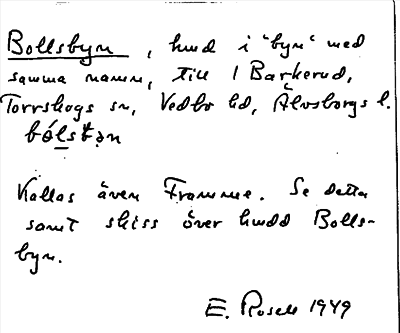 Bollsbyn, hmd i "byn" med
samma namn, till 1 Barkerud,
Torrskogs sn, Vedbo hd, Älvsborgs l.
bólstən
Kallas även Framme. Se detta
samt skiss över hmdd Bolls-
byn.
E. Rosell 1949